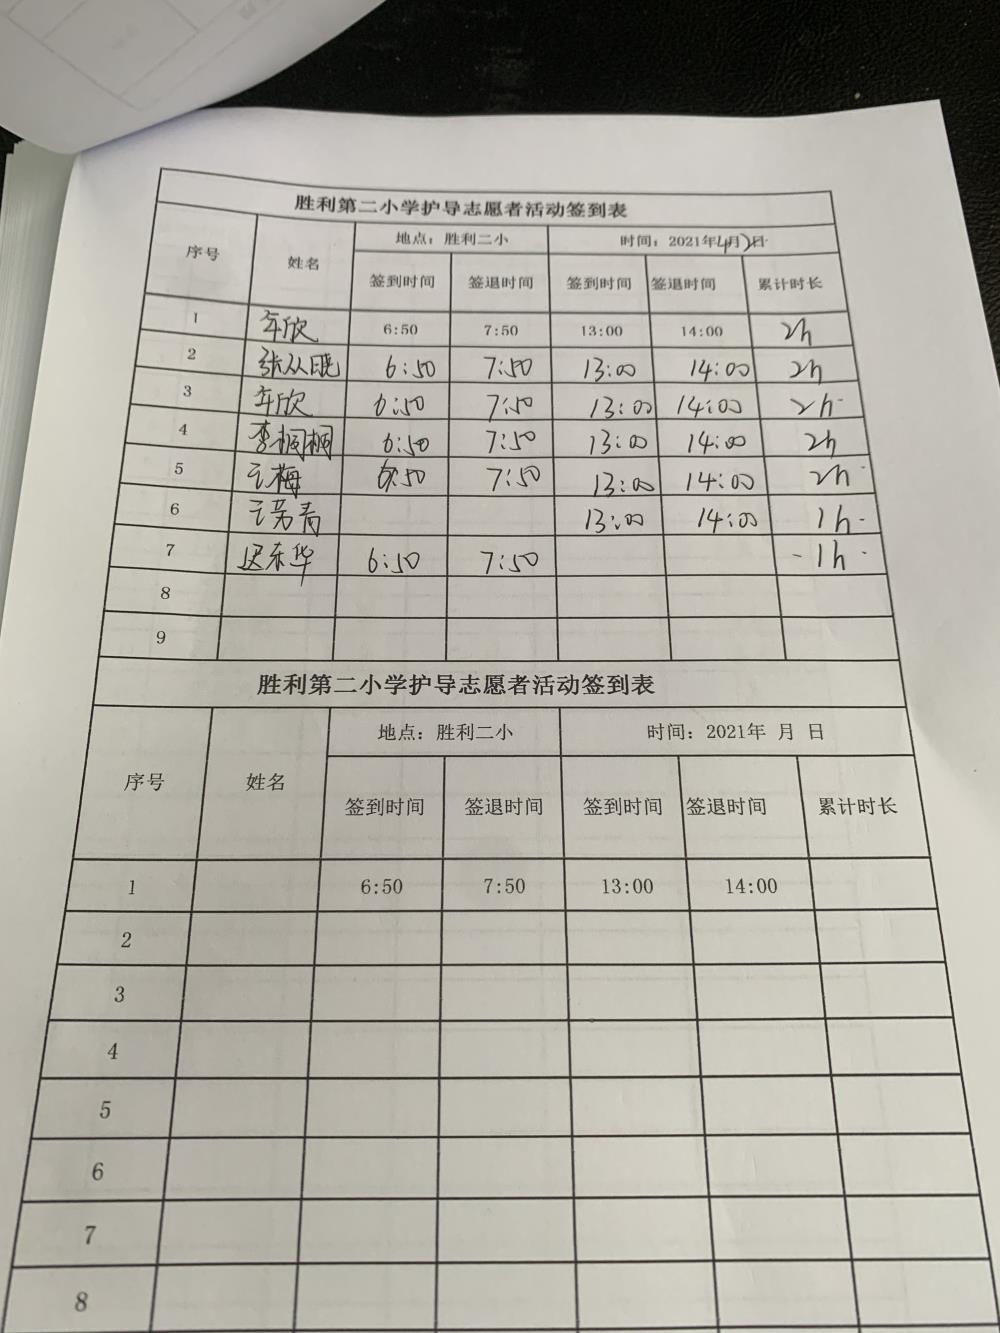 胜利第二小学护导志愿者活动签到表
序号 姓名 地点：胜利二小 时间：2021年4月2日
签到时间 签退时间 签到时间 签退时间 累计时长
1 车欣 6:50 7:50 13:00 14:00 2h
2 张从晓 6:50 7:50 13:00 14:00 2h
3 车欣 6:50 7:50 13:00 14:00 2h
4 李桐桐 6:50 7:50 13:00 14:00 2h
5 王梅 6:50 7:50 13:00 14:00 2h
6 王芳青 13:00 14:00 1h
7 迟东华 6:50 7:50 1h
8
9
胜利第二小学护导志愿者活动签到表
序号 姓名 地点：胜利二小 时间：2021年 月 日
签到时间 签退时间 签到时间 签退时间 累计时长
1 6:50 7:50 13:00 14:00
2
3
4
5
6
7
8